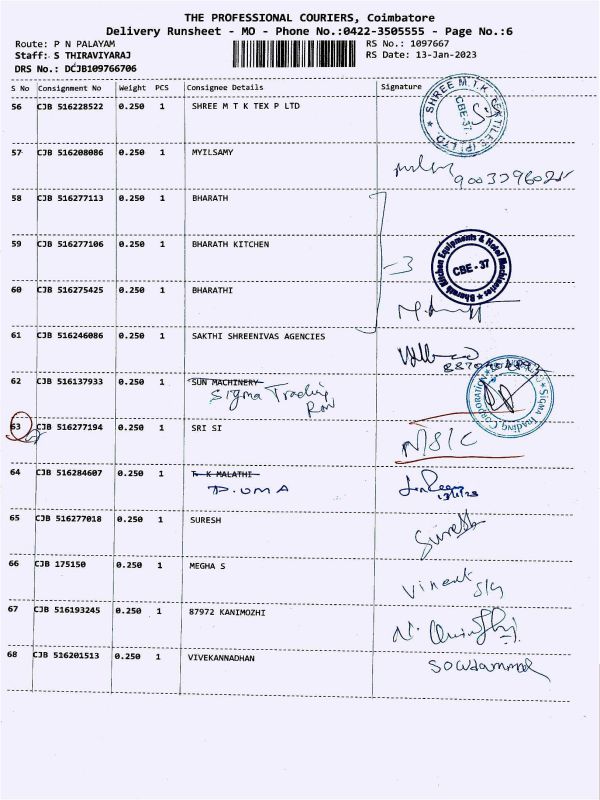 THE PROFESSIONAL COURIERS, Coimbatore
Delivery Runsheet - MO - Phone No.:0422-3505555 - Page No.:6
Route: P N PALAYAM
RS No.: 1097667
Staff: S THIRAVIYARAJ
RS Date: 13-Jan-2023
DRS No.: DCJB109766706
S No Consignment No Weight PCS Consignee Details Signature
56 CJB 516228522 0.250 1 SHREE M T K TEX P LTD
SHREE M.T.K. TEXTILES (P) LTD.
CBE-37
57 CJB 516208086 0.250 1 MYILSAMY
58 CJB 516277113 0.250 1 BHARATH
59 CJB 516277106 0.250 1 BHARATH KITCHEN
-3
Bharath Kitchen Equipments & Hotel Machineries
CBE-37
60 CJB 516275425 0.250 1 BHARATHI
61 CJB 516246086 0.250 1 SAKTHI SHREENIVAS AGENCIES
62 CJB 516137933 0.250 1 SUN MACHINERY
Sigma Trading
Sigma Trading CORPORATION
63 CJB 516277194 0.250 1 SRI SI
N/S/C
64 CJB 516284607 0.250 1 T K MALATHI
P. UMA
13/1/23
65 CJB 516277018 0.250 1 SURESH
Suresh
66 CJB 175150 0.250 1 MEGHA S
Vineet
67 CJB 516193245 0.250 1 87972 KANIMOZHI
68 CJB 516201513 0.250 1 VIVEKANNADHAN